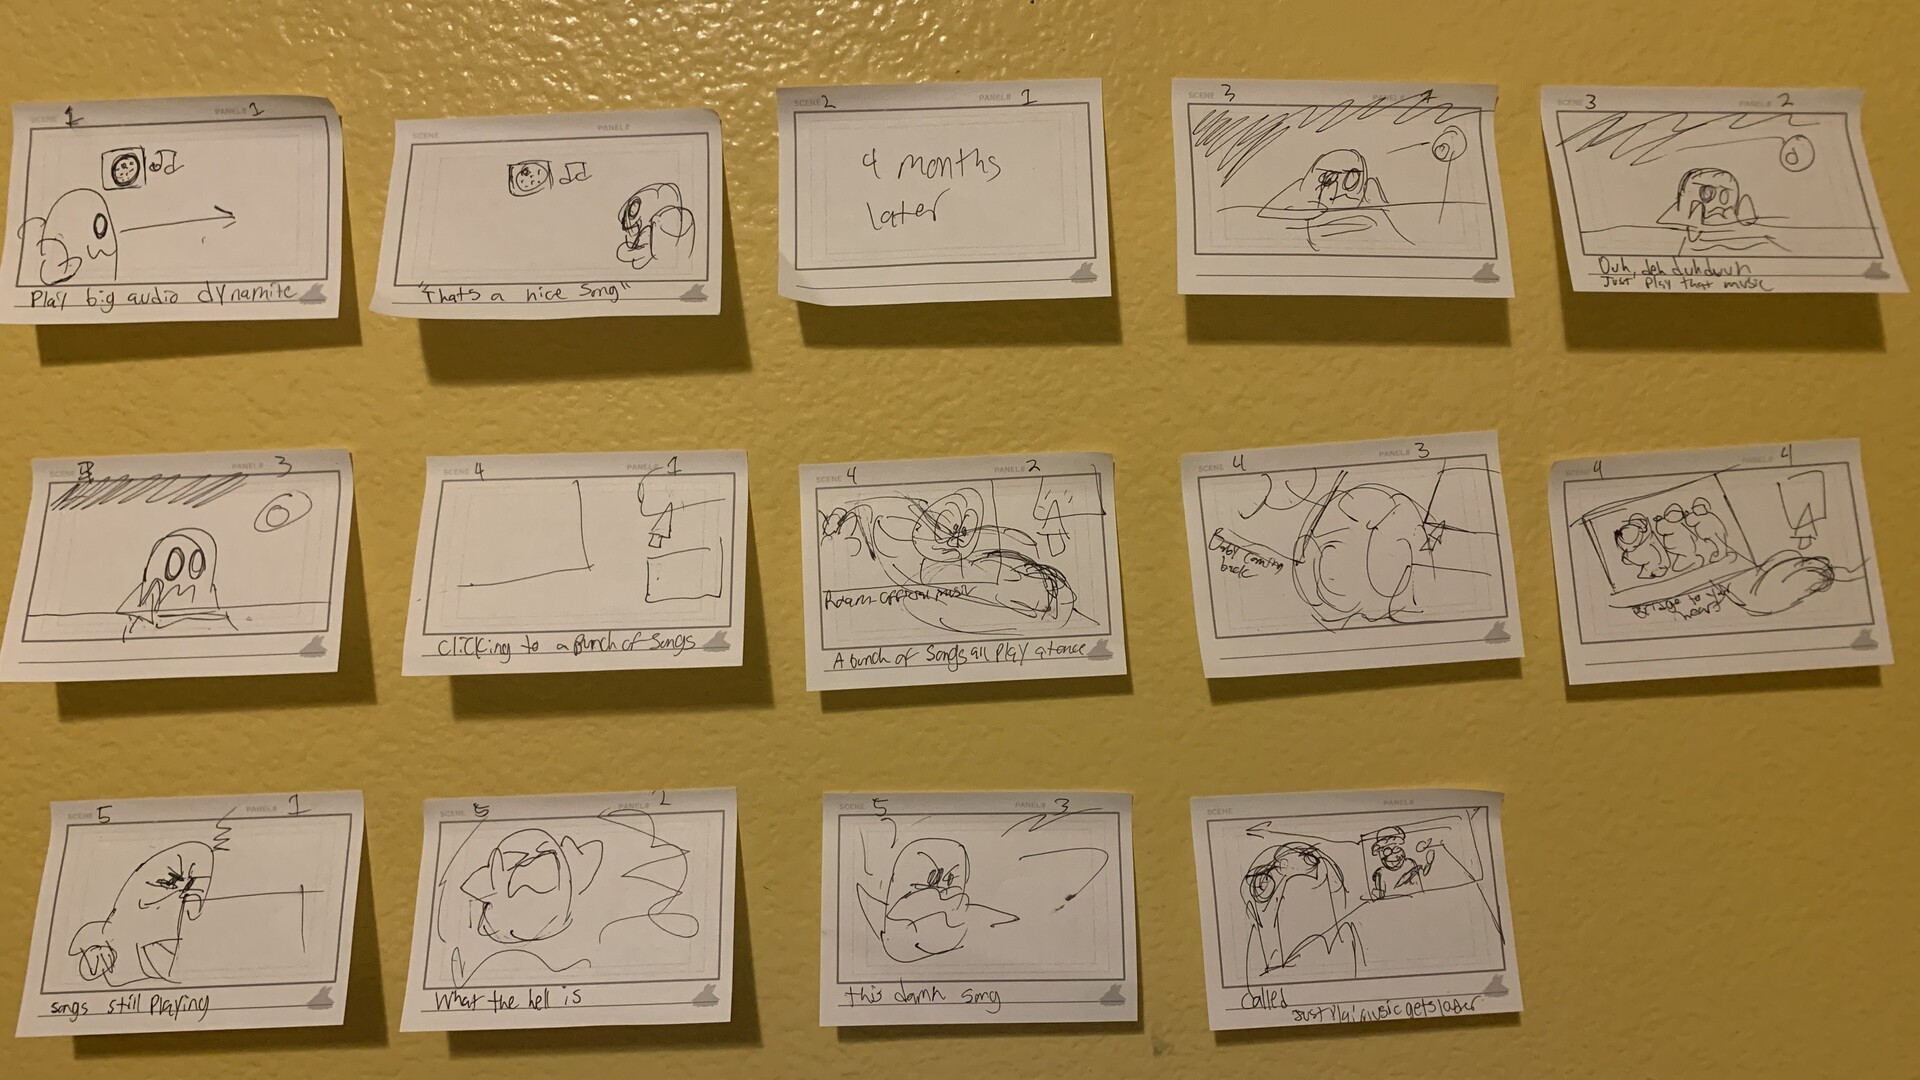 SCENE 1 PANEL# 1
Play big audio dynamite
SCENE PANEL#
"Thats a nice song"
SCENE 2 PANEL# 1
4 months
later
SCENE 3 PANEL# 1
SCENE 3 PANEL# 2
Duh, deh duhduuh
Just play that music
SCENE PANEL# 3
SCENE 4 PANEL# 1
Clicking to a bunch of songs
SCENE 4 PANEL# 2
Roam official music
A bunch of songs all play at once
SCENE 4 PANEL# 3
Baby coming
back
SCENE 4 PANEL# 4
Bridge to your
heart
SCENE 5 PANEL# 1
songs still playing
SCENE 5 PANEL# 2
What the hell is
SCENE 5 PANEL# 3
this damn song
SCENE PANEL#
Called
Just play music gets louder